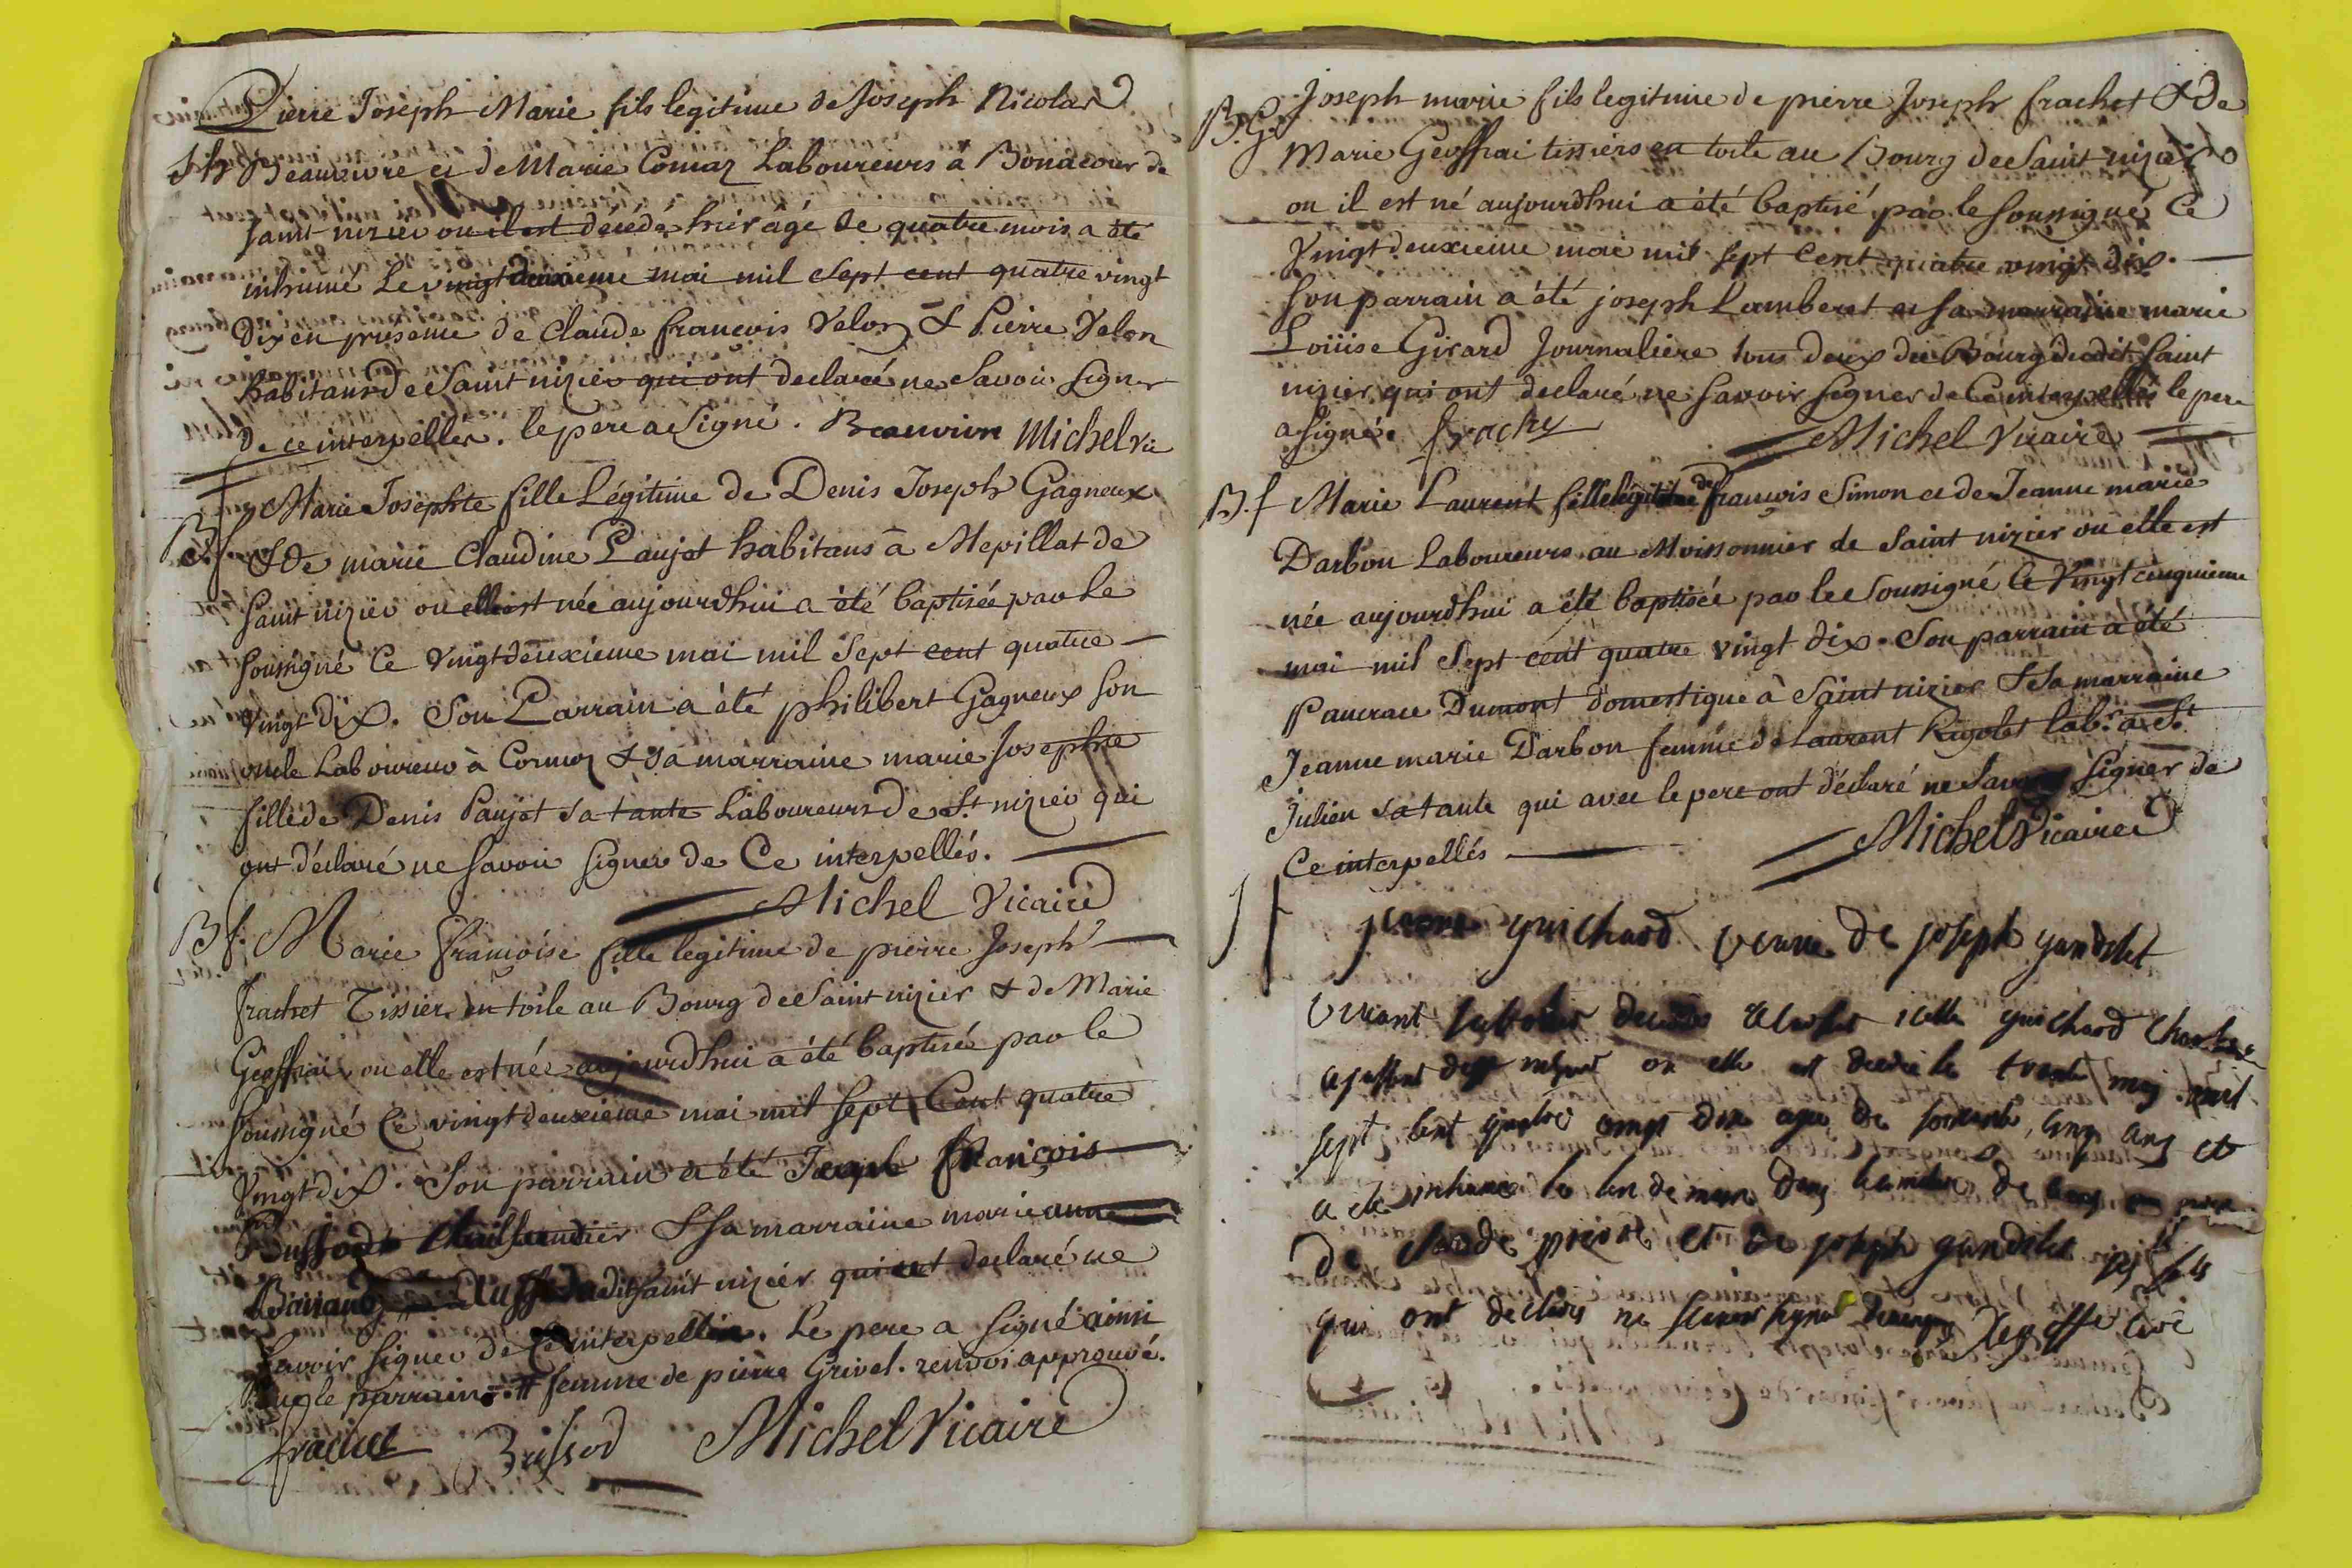 Pierre Joseph Marie fils legitime de Joseph Nicolas
Beauvivre et de Marie Comaz Laboureurs à Bonacour de
saint nizier ou il est décédé hier agé de quatre mois a été
inhumé Le vingt deuxieme mai mil Sept cent quatre vingt
Dix en presence de Claude françois Velon & Pierre Velon
habitans de Saint nizier qui ont declaré ne Savoir Signer
de ce interpellés. le pere a Signé. Beauvivre Michel vic
B f Marie Josephte fille Légitime de Denis Joseph Gagneux
& de marie Claudine Paujet habitans à Mepillat de
Saint nizier ou elle est née aujourdhui a été baptisée par le
Soussigné Ce vingt deuxieme mai mil Sept cent quatre
vingt dix. Son Parrain a été philibert Gagneux son
oncle Laboureur à Cormoz & sa marraine marie Josephte
fille de Denis Paujet sa tante Laboureurs de St. nizier qui
ont déclaré ne Savoir Signer de Ce interpellés.
Michel Vicaire
B f. Marie françoise fille legitime de pierre Joseph
frachet Tissier en toile au Bourg de Saint nizier & de Marie
Geoffrai ou elle est née aujourdhui a été baptisée par le
Soussigné Ce vingt deuxieme mai mil Sept Cent quatre
Vingt dix. Son parrain a été Joseph françois
Bussod & Sa marraine marie anne
dudit saint nizier qui ont declaré ne
Savoir Signer de Ce interpellés. Le pere a Signé ainsi
que le parrain. # femme de pierre Grivel. renvoi approuvé.
frachet Bussod Michel Vicaire
B. G. Joseph marie fils legitime de pierre Joseph frachet & de
Marie Geoffrai tissiers en toile au Bourg de Saint nizier
ou il est né aujourdhui a été baptisé par le soussigné Ce
Vingt deuxieme mai mil Sept Cent quatre vingt dix.
Son parrain a été joseph Lamberet et sa marraine marie
Loüise Girard Journaliere tous deux du Bourg dudit Saint
nizier qui ont declaré ne Savoir Signer de Ce interpellés le pere
a Signé. frachet Michel Vicaire
B. f Marie Laurent fille legitime de françois Simon et de Jeanne marie
Darbon Laboureurs au Moissonnier de Saint nizier ou elle est
née aujourdhui a été baptisée par le Soussigné le Vingt cinquieme
mai mil Sept cent quatre vingt dix. Son parrain a été
Pancrace Dumont domestique à Saint nizier & Sa marraine
Jeanne marie Darbon femme de Laurent Rigolet lab.r à St.
Julien sa tante qui avec le pere ont déclaré ne Savoir Signer de
Ce interpellés Michel Vicaire
guichard veuve de joseph gandelet
vivant icelle guichard
ou elle est decedée le trente may mil
sept cent quatre vingt dix agée de soixante cinq ans et
a été inhumée le lendemain dans le cimetiere de
de Claude et de joseph gandelet ses fils
qui ont declarés ne scavoir signer curé